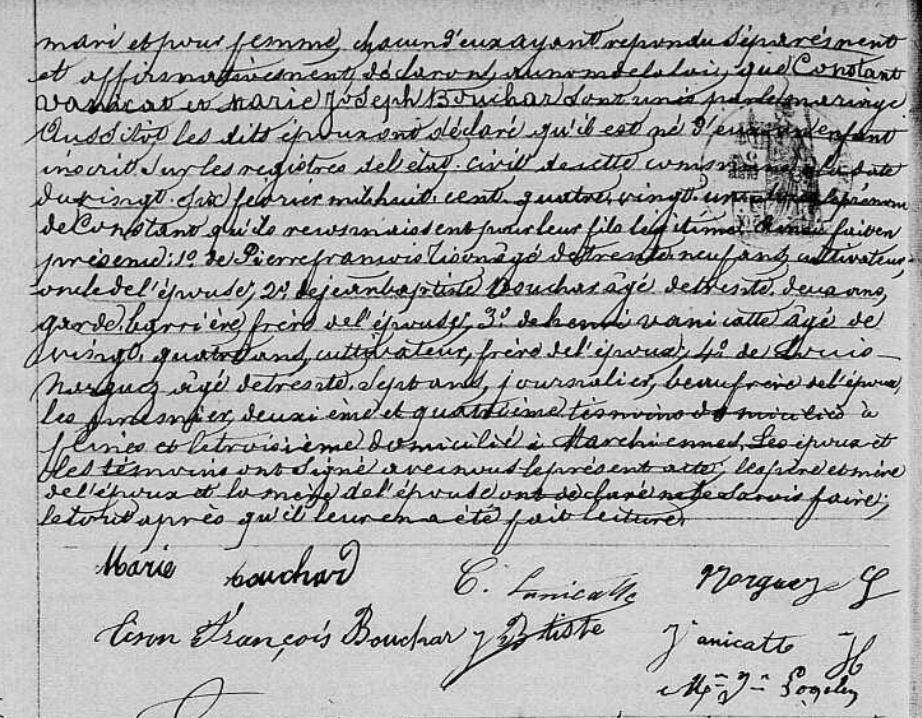 mari et pour femme, chacun d'eux ayant repondu séparément
et affirmativement, déclarons, au nom de la loi, que Constant
Vanicat et Marie Joseph Bouchar sont unis par le mariage
Aussitôt les dits époux ont déclaré qu'il est né d'eux un enfant
inscrit sur les registres de l'état civil de cette commune à la date
du vingt six février mil huit cent quatre vingt un
de Constant qu'ils reconnaissent pour leur fils légitime. Ainsi fait en
présence: 1º de Pierre françois tison âgé de trente neuf ans, cultivateur,
oncle de l'épouse, 2º de jean baptiste Bouchar âgé de trente deux ans,
garde barrière, frère de l'épouse, 3º de henri vanicatte âgé de
vingt quatre ans, cultivateur, frère de l'époux, 4º de Louis
Norguez âgé de trente sept ans, journalier, beau frère de l'époux,
les premier, deuxième et quatrième témoins domiciliés à
et le troisième domicilié à Marchiennes. Les époux et
les témoins ont signé avec nous le présent acte, les père et mère
de l'époux et la mère de l'épouse ont déclaré ne le savoir faire;
le tout après qu'il leur en a été fait lecture.
Marie bouchard C. Vanicatte Norguez L
tison François Bouchar J Btiste Vanicatte H